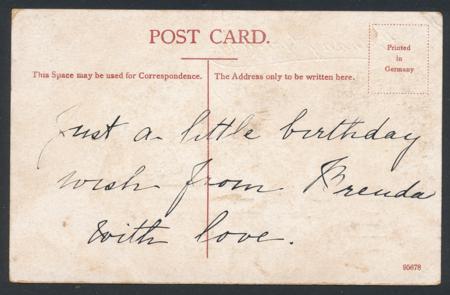 POST CARD.
Printed
in
Germany
This Space may be used for Correspondence.
The Address only to be written here.
Just a little birthday
wish from Brenda
With love.
95678